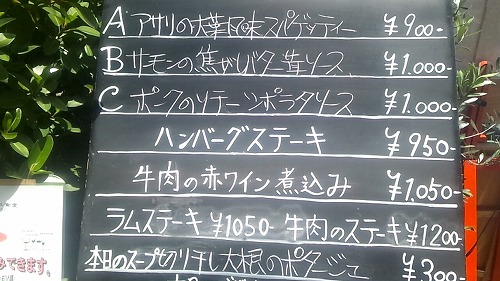 A アサリの大葉風味スパゲッティー ¥900-
B サーモンの焦がしバター醤ソース ¥1.000-
C ポークのソテーシポラタソース ¥1.000-
ハンバーグステーキ ¥950-
牛肉の赤ワイン煮込み ¥1.050-
ラムステーキ ¥1050- 牛肉のステーキ ¥1200-
本日のスープ切り干し大根のポタージュ ¥300-
できます。